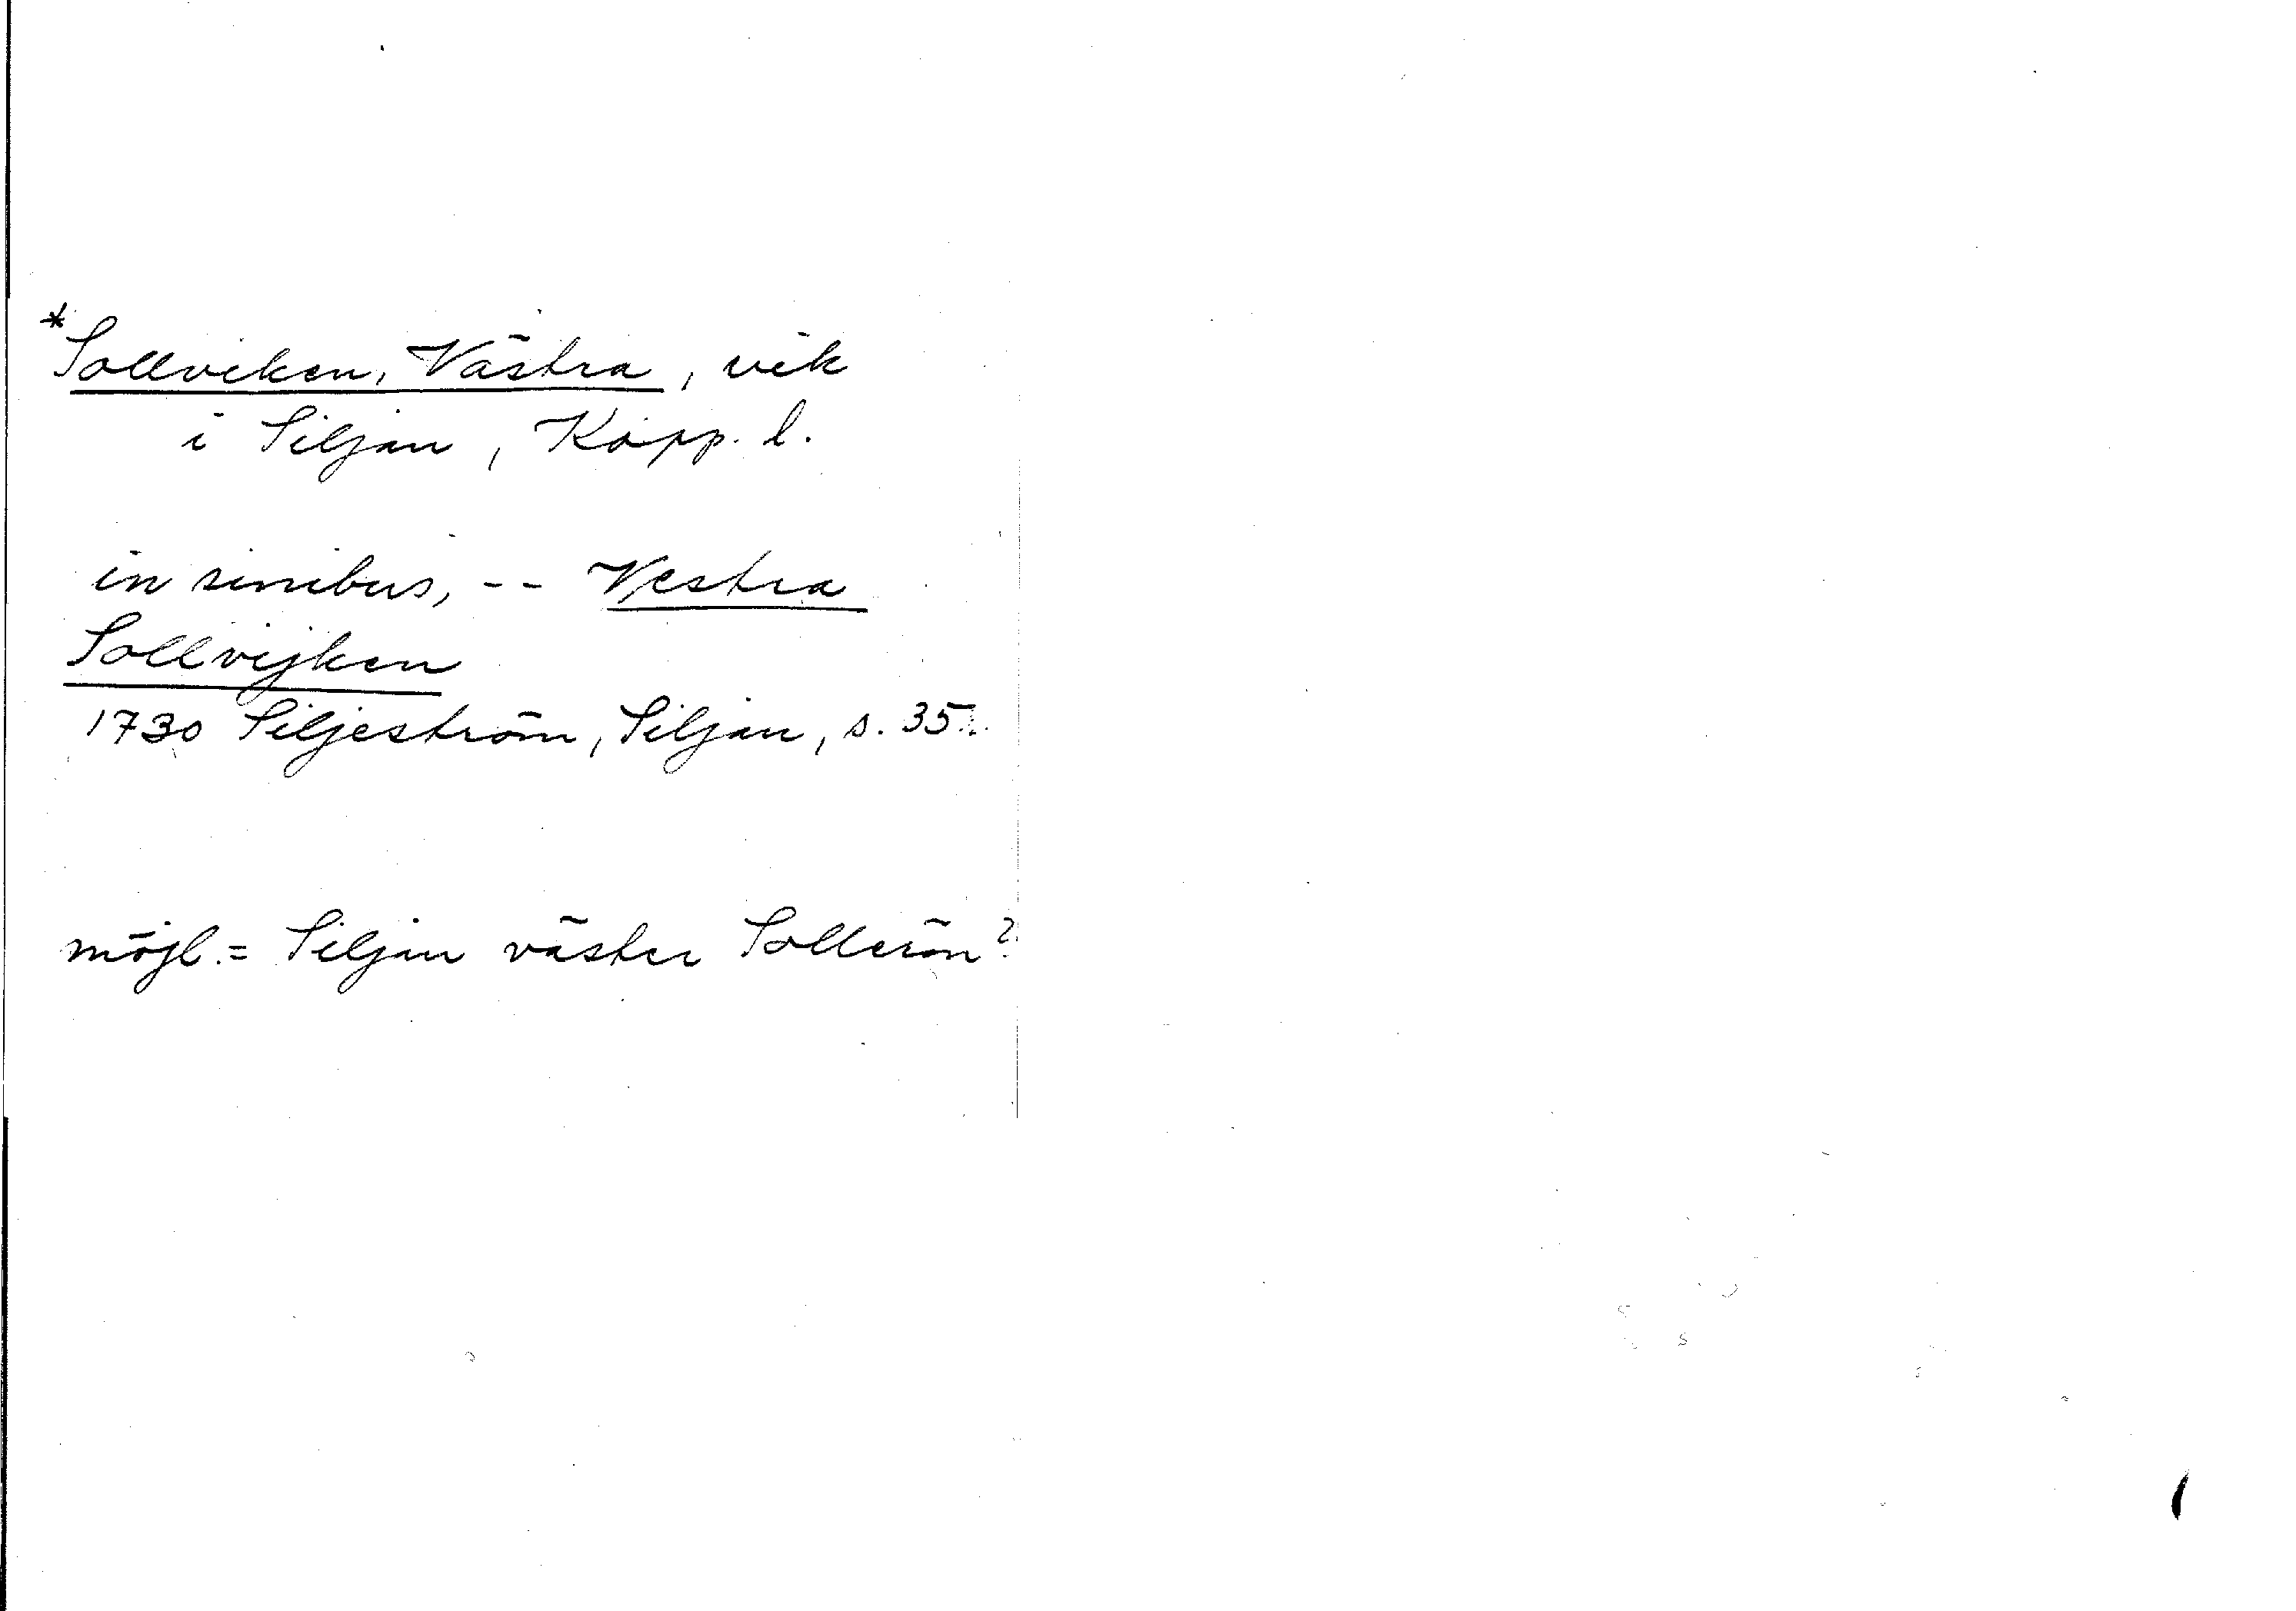 *Sollviken, Västra, vik
i Siljan, Kopp. l.
in sinibus, -- Vestra
Sollvijken
1730 Siljeström, Siljan, s. 35.
möjl. = Siljan väster Sollerön?